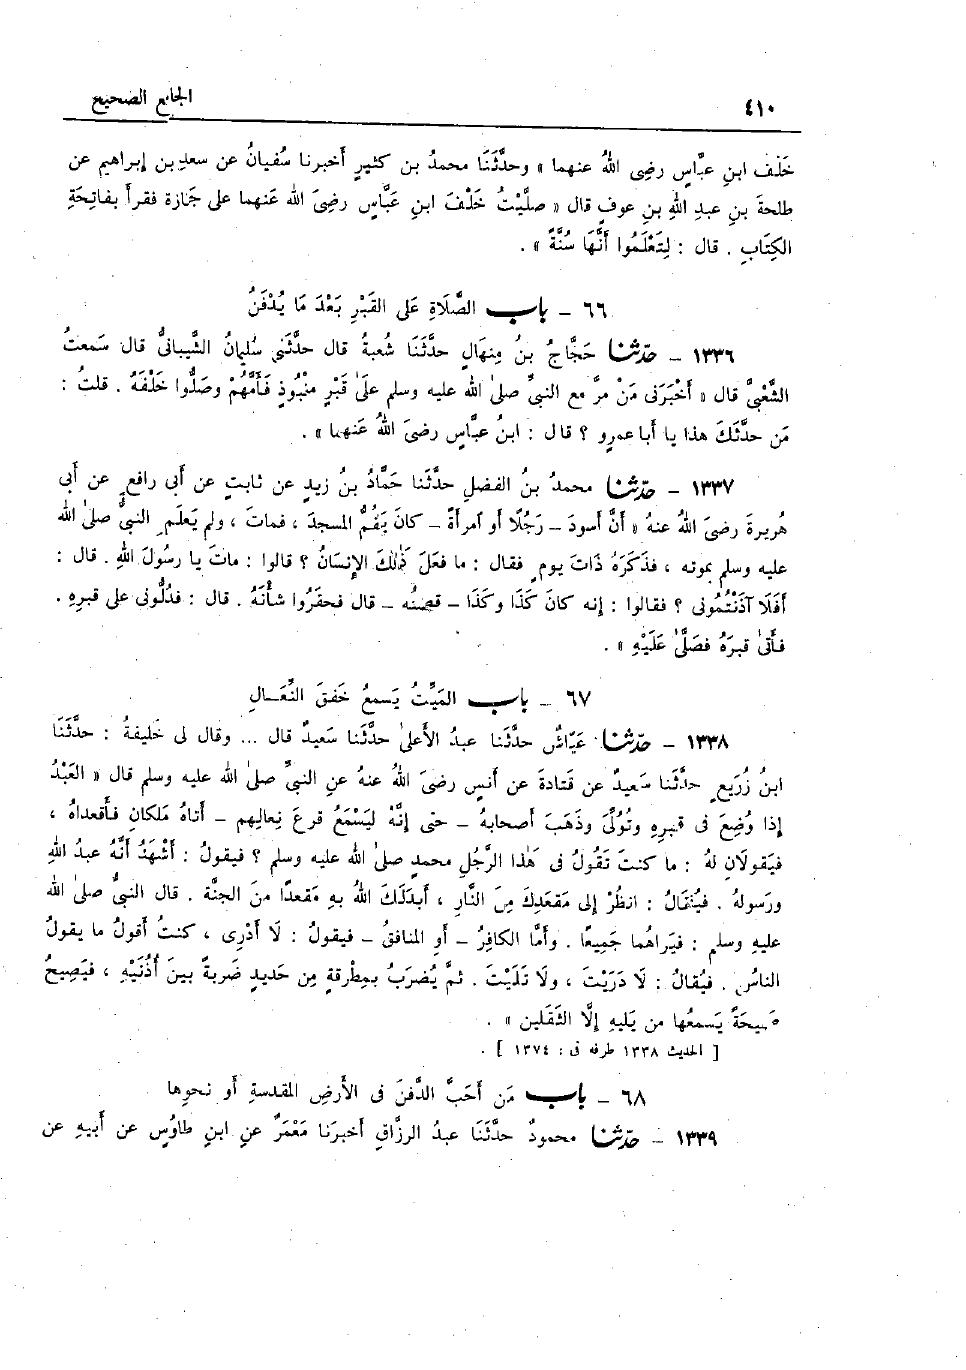 ٤١٠ الجامع الصحيح
خَلْفَ ابنِ عبَّاسٍ رضِى اللهُ عنهما » وحدَّثَنَا محمدُ بن كثيرٍ أخبرنا سُفيانُ عن سعدِ بن إبراهيم عن
طلحةَ بنِ عبدِ اللهِ بنِ عوفٍ قال « صلَّيْتُ خَلْفَ ابنِ عَبَّاسٍ رضِىَ الله عَنهما على جَازة فقرأَ بفاتِحَةِ
الكِتَابِ . قال : لِتَعْلَمُوا أَنَّهَا سُنَّةٌ » .
٦٦ – باب الصَّلَاةِ عَلى القَبْرِ بَعْدَ مَا يُدْفَنُ
١٣٣٦ – حدّثنا حَجَّاجُ بنُ مِنهَالٍ حدَّثَنَا شُعبةُ قال حدَّثَنى سُليمانُ الشَّيبانىُّ قال سَمعتُ
الشَّعْبىَّ قال « أَخْبَرَنى مَنْ مرَّ مع النبىِّ صلى الله عليه وسلم علىٰ قَبْرٍ مَنْبُوذٍ فَأَمَّهُمْ وصَلُّوا خَلْفَهُ . قلتُ :
مَن حدَّثَكَ هذا يا أبا عمرٍو ؟ قال : ابنُ عبَّاسٍ رضىَ اللهُ عَنهما » .
١٣٣٧ – حدّثنا محمدُ بنُ الفضلِ حدَّثَنا حَمَّادُ بنُ زيدٍ عن ثابتٍ عن أبى رافعٍ عن أبى
هُريرةَ رضىَ اللهُ عنهُ « أنَّ أسودَ – رَجُلًا أو آمرأةً – كانَ يَقُمُّ المسجدَ ، فماتَ ، ولم يَعلمِ النبىُّ صلىٰ الله
عليه وسلم بموته ، فذَكَرَهُ ذَاتَ يومٍ فقال : ما فعَلَ ذٰلِكَ الإِنسَانُ ؟ قالوا : ماتَ يا رسُولَ اللهِ . قال :
أَفَلَا آذَنْتُمُونى ؟ فقالوا : إنه كانَ كَذَا وكَذَا – قصتُه – قال فحقَروا شأنَهُ . قال : فدُلُّونى على قبرِهِ .
فأتىٰ قبرَهُ فصَلَّىٰ عَلَيْهِ » .
٦٧ – باب الميِّتُ يَسمعُ خَفقَ النِّعَالِ
١٣٣٨ – حدّثنا عَيّاشٌ حدَّثَنا عبدُ الأعلىٰ حدَّثَنا سَعيدٌ قال ... وقال لى خَليفةُ : حدَّثَنَا
ابنُ زُرَيعٍ حدَّثَنا سَعيدٌ عن قَتادةَ عن أنسٍ رضىَ اللهُ عنهُ عنِ النبىِّ صلىٰ الله عليه وسلم قال « العَبْدُ
إذا وُضِعَ فى قبرِهِ وتُوُلِّىَ وذَهَبَ أصحابهُ – حتى إنَّهُ ليَسْمَعُ قرعَ نِعالِهم – أتاهُ مَلكانِ فأقعداهُ ،
فيَقولَانِ لهُ : ما كنتَ تَقُولُ فى هَٰذا الرَّجُلِ محمدٍ صلىٰ الله عليه وسلم ؟ فيقولُ : أَشْهَدُ أنَّهُ عبدُ اللهِ
ورَسولهُ . فيُقَالُ : انظُرْ إلى مَقْعَدِكَ مِنَ النَّارِ ، أبدَلَكَ اللهُ بهِ مَقعدًا منَ الجنَّة . قال النبىُّ صلىٰ الله
عليهِ وسلم : فيَراهُما جَمِيعًا . وأمَّا الكافِرُ – أوِ المنافقُ – فيقولُ : لَا أَدْرِى ، كنتُ أقولُ ما يقولُ
الناسُ . فيُقالُ : لَا دَرَيْتَ ، ولَا تَلَيْتَ . ثمَّ يُضرَبُ بمِطْرقةٍ مِن حَديدٍ ضَربةً بينَ أُذُنَيْهِ ، فيَصيحُ
صَيحَةً يَسمعُها من يَليهِ إلَّا الثَّقَلين » .
[ الحديث ١٣٣٨ طرفه فى : ١٣٧٤ ] .
٦٨ – باب مَن أحَبَّ الدَّفنَ فى الأرضِ المقدسةِ أو نحوِها
١٣٣٩ – حدّثنا محمودٌ حدَّثَنَا عبدُ الرزَّاقِ أخبرَنا مَعْمَرٌ عنِ ابنِ طاوُسٍ عن أبيهِ عن